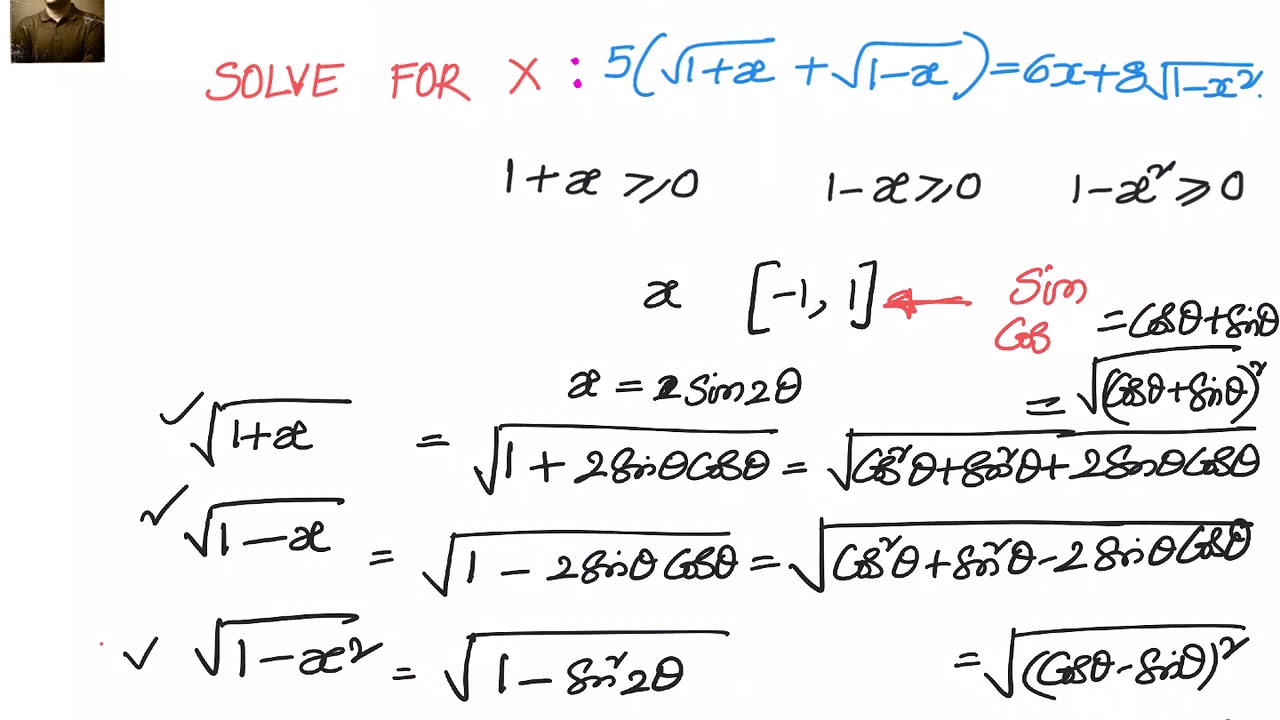 SOLVE FOR X : 5(√(1+x) + √(1-x)) = 6x+8√(1-x²).
1+x ⩾ 0 1-x ⩾ 0 1-x² ⩾ 0
x [-1, 1] ← Sin
Cos
= Cosθ+Sinθ
x = Sin2θ
= √((Cosθ+Sinθ)²)
✓ √(1+x) = √(1 + 2SinθCosθ) = √(Cos²θ+Sin²θ+2SinθCosθ)
✓ √(1-x) = √(1 - 2SinθCosθ) = √(Cos²θ+Sin²θ-2SinθCosθ)
✓ √(1-x²) = √(1 - Sin²2θ)
= √((Cosθ-Sinθ)²)